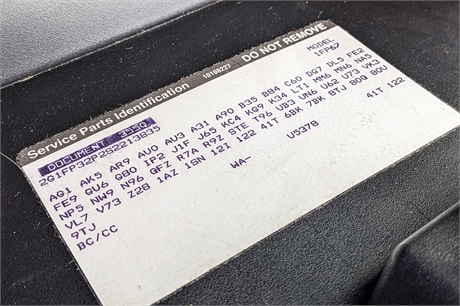 Service Parts Identification 10108227 DO NOT REMOVE
DOCUMENT. 3550. MODEL
2G1FP32P2S2213835 1FP67
AG1 AK5 AR9 AU0 AU3 A31 A90 B35 BB4 C60 DG7 DL5 FE2
FE9 GU6 G80 IP2 J1F J65 KC4 KG9 K34 LT1 MM6 MN6 NA5
NP5 NW9 N96 QFZ R7A R9Z STE T96 UB3 UN6 U62 U73 VK3
VL7 V73 Z28 1AZ 1SN 12I 122 41T 6BK 7BK 8TJ 80B 80U
9TJ U5378 41T 122
BC/CC WA-